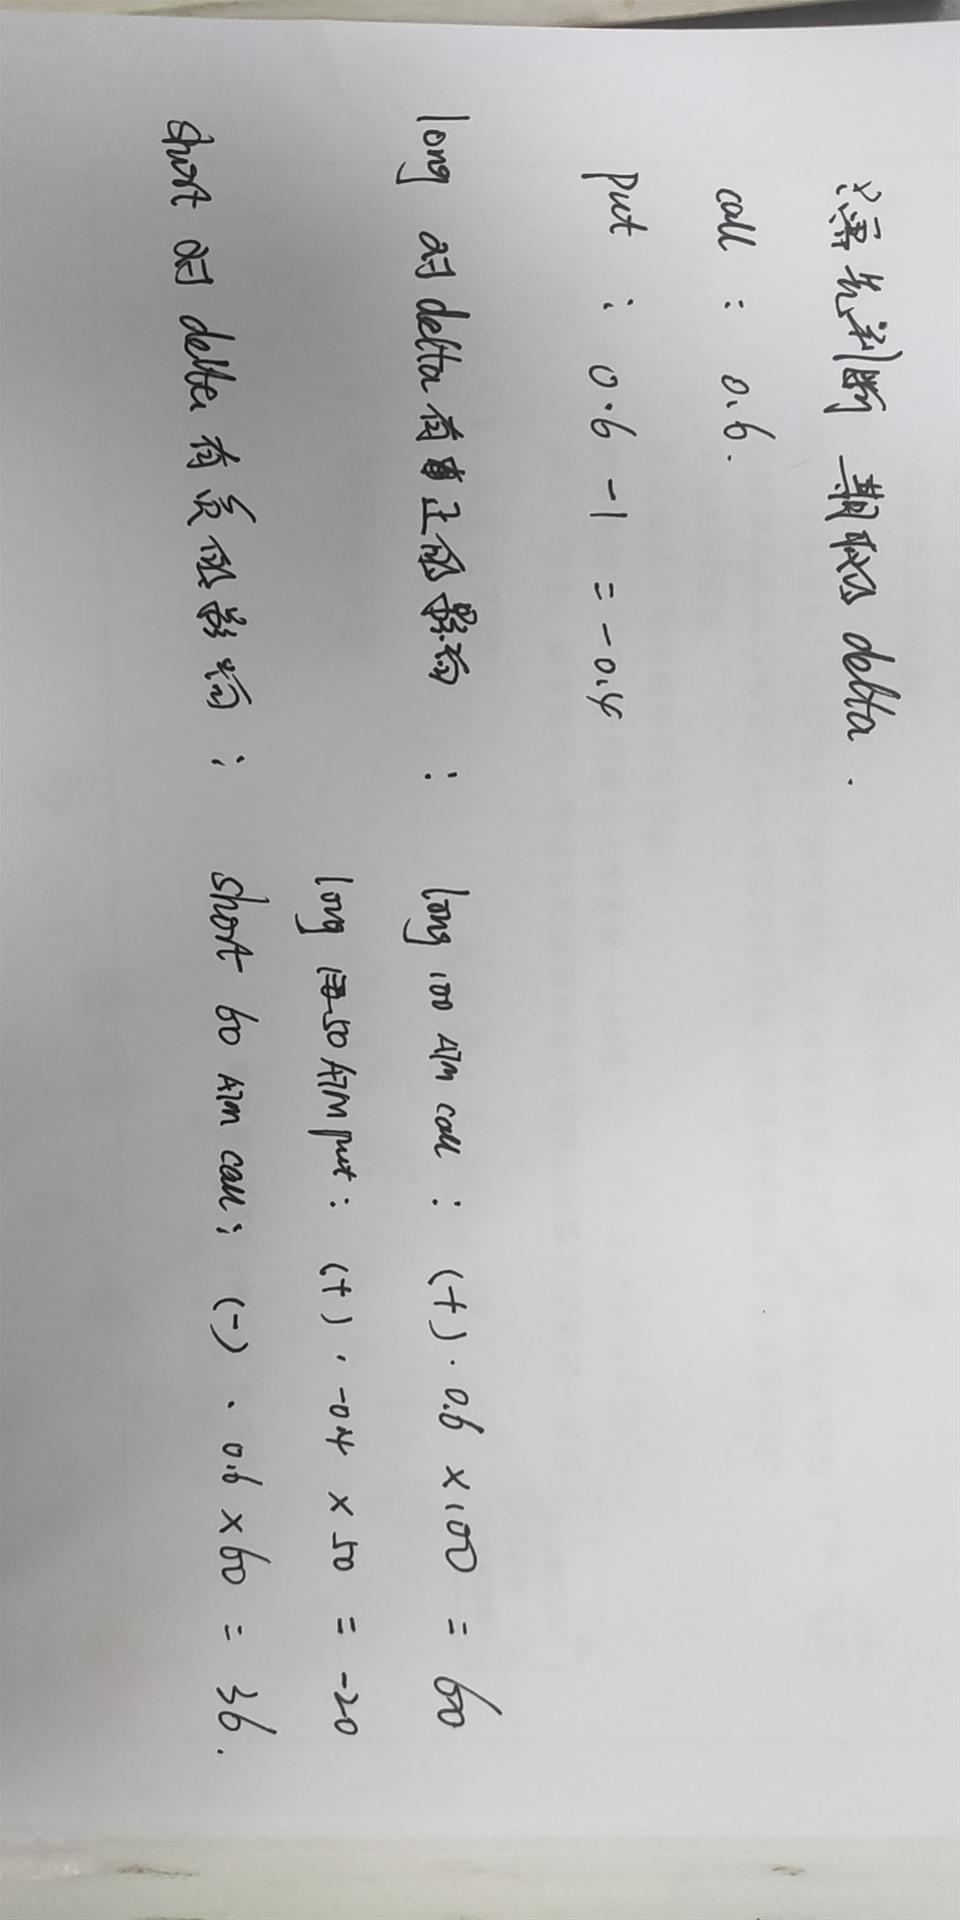 需先判断 期权的 delta.
call : 0.6.
put : 0.6 -1 = -0.4
long 对 delta 有正的影响 : long 100 ATM call : (+) · 0.6 × 100 = 60
long 50 ATM put : (+) · -0.4 × 50 = -20
short 对 delta 有负的影响 : short 60 ATM call : (-) · 0.6 × 60 = 36.